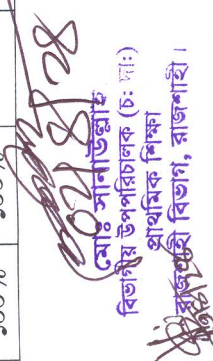 ১০০%
১০০%
মোঃ সানাউল্লাহ
বিভাগীয় উপপরিচালক (চঃ দাঃ)
প্রাথমিক শিক্ষা
রাজশাহী বিভাগ, রাজশাহী।